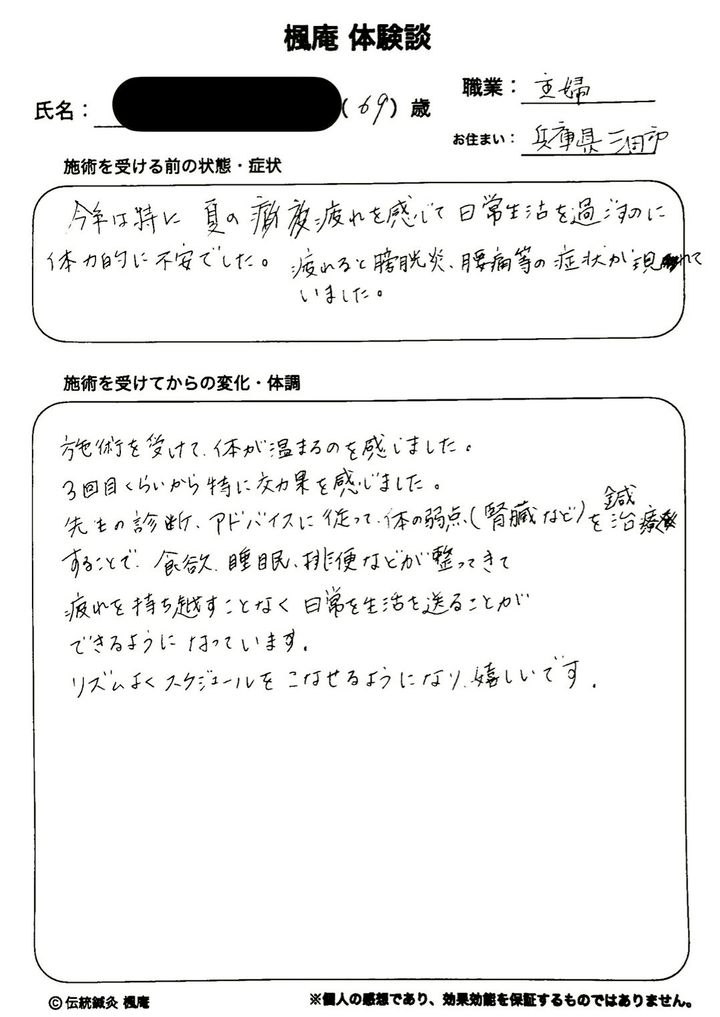 楓庵 体験談
氏名： (69) 歳
職業： 主婦
お住まい： 兵庫県三田市
施術を受ける前の状態・症状
今年は特に 夏の 疲れを感じて 日常生活を過ごすのに
体力的に不安でした。 疲れると膀胱炎、腰痛等の症状が現れて
いました。
施術を受けてからの変化・体調
施術を受けて、体が温まるのを感じました。
3回目くらいから特に効果を感じました。
先生の診断、アドバイスに従って、体の弱点(腎臓など)を鍼治療
することで、食欲、睡眠、排便などが整ってきて
疲れを持ち越すことなく 日常を生活を送ることが
できるようになっています。
リズムよくスケジュールをこなせるようになり、嬉しいです。
© 伝統鍼灸 楓庵
※個人の感想であり、効果効能を保証するものではありません。